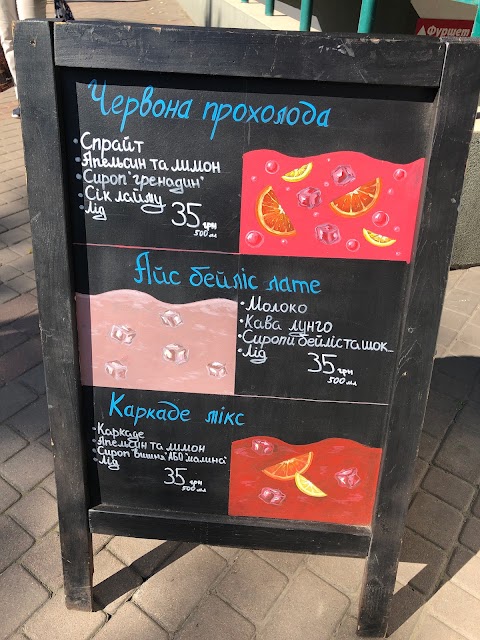 Фуршет
Червона прохолода
• Спрайт
• Апельсин та лимон
• Сироп "гренадин"
• Сік лайму
• Лід
35 грн
500 мл
Айс бейліс лате
• Молоко
• Кава лунго
• Сиропи бейлісташок...
• Лід
35 грн
500 мл
Каркаде мікс
• Каркаде
• Апельсин та лимон
• Сироп "вишня" АБО "малина"
• Лід
35 грн
500 мл